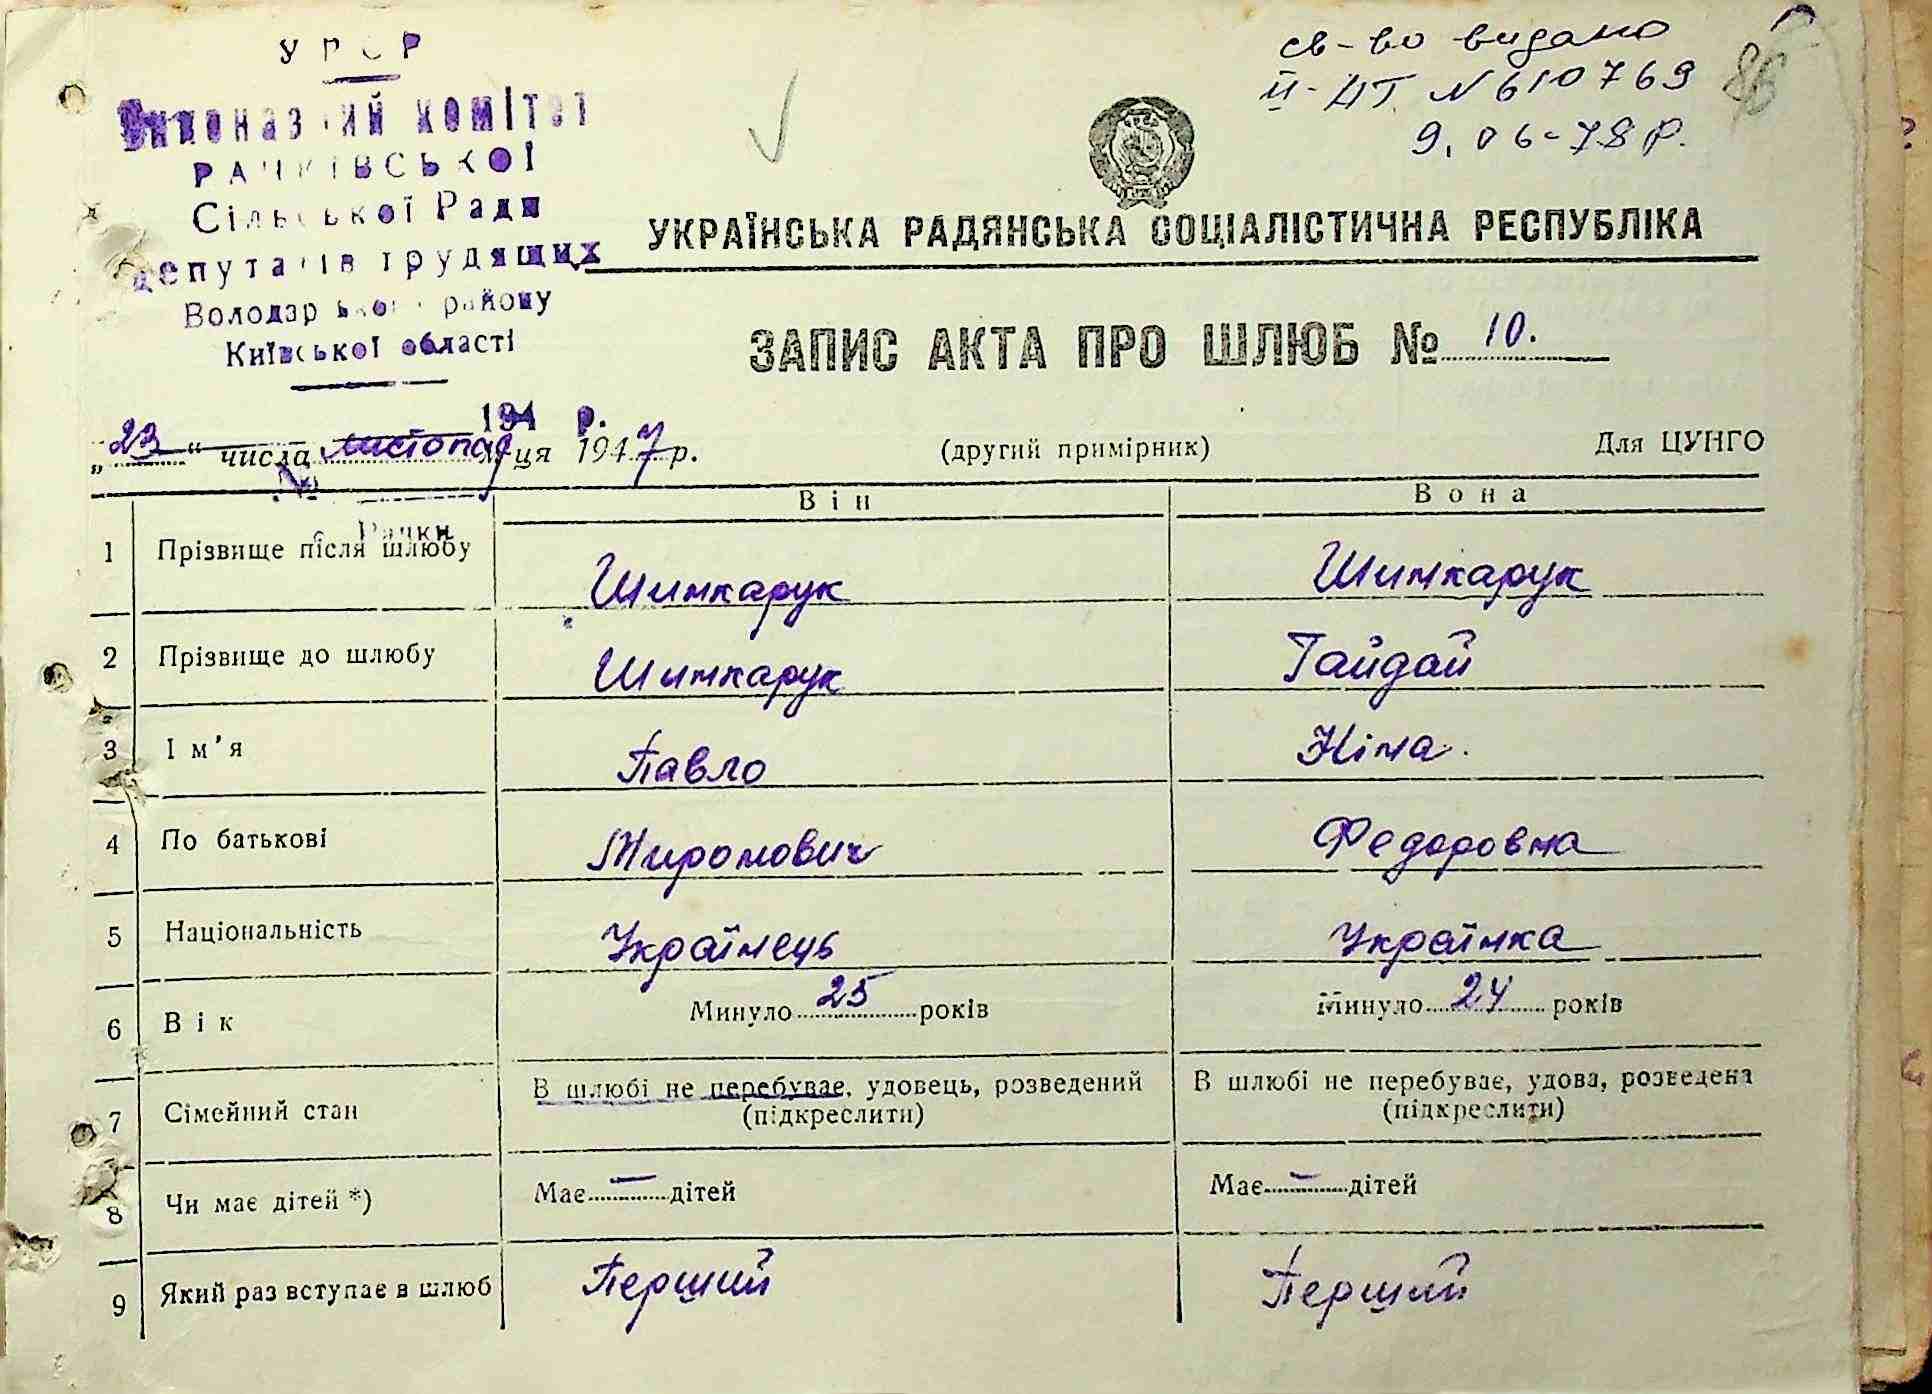 УРСР
Виконавчий комітет
РАЧКІВСЬКОЇ
Сільської Ради
депутатів трудящих
Володарського району
Київської області
194 р.
№
с. Рачки
св-во видано
ІІ-НТ № 610769
9.06-78 р.
86
УКРАЇНСЬКА РАДЯНСЬКА СОЦІАЛІСТИЧНА РЕСПУБЛІКА
ЗАПИС АКТА ПРО ШЛЮБ № 10.
„23“ числа листопад ця 1947 р. (другий примірник) Для ЦУНГО
Він Вона
1 Прізвище після шлюбу Шинкарук Шинкарук
2 Прізвище до шлюбу Шинкарук Гайдай
3 Ім’я Павло Ніна.
4 По батькові Миронович Федоровна
5 Національність Українець Українка
6 Вік Минуло 25 років Минуло 24 років
7 Сімейний стан В шлюбі не перебуває, удовець, розведений (підкреслити) В шлюбі не перебуває, удова, розведена (підкреслити)
8 Чи має дітей *) Має — дітей Має — дітей
9 Який раз вступає в шлюб Перший Перший